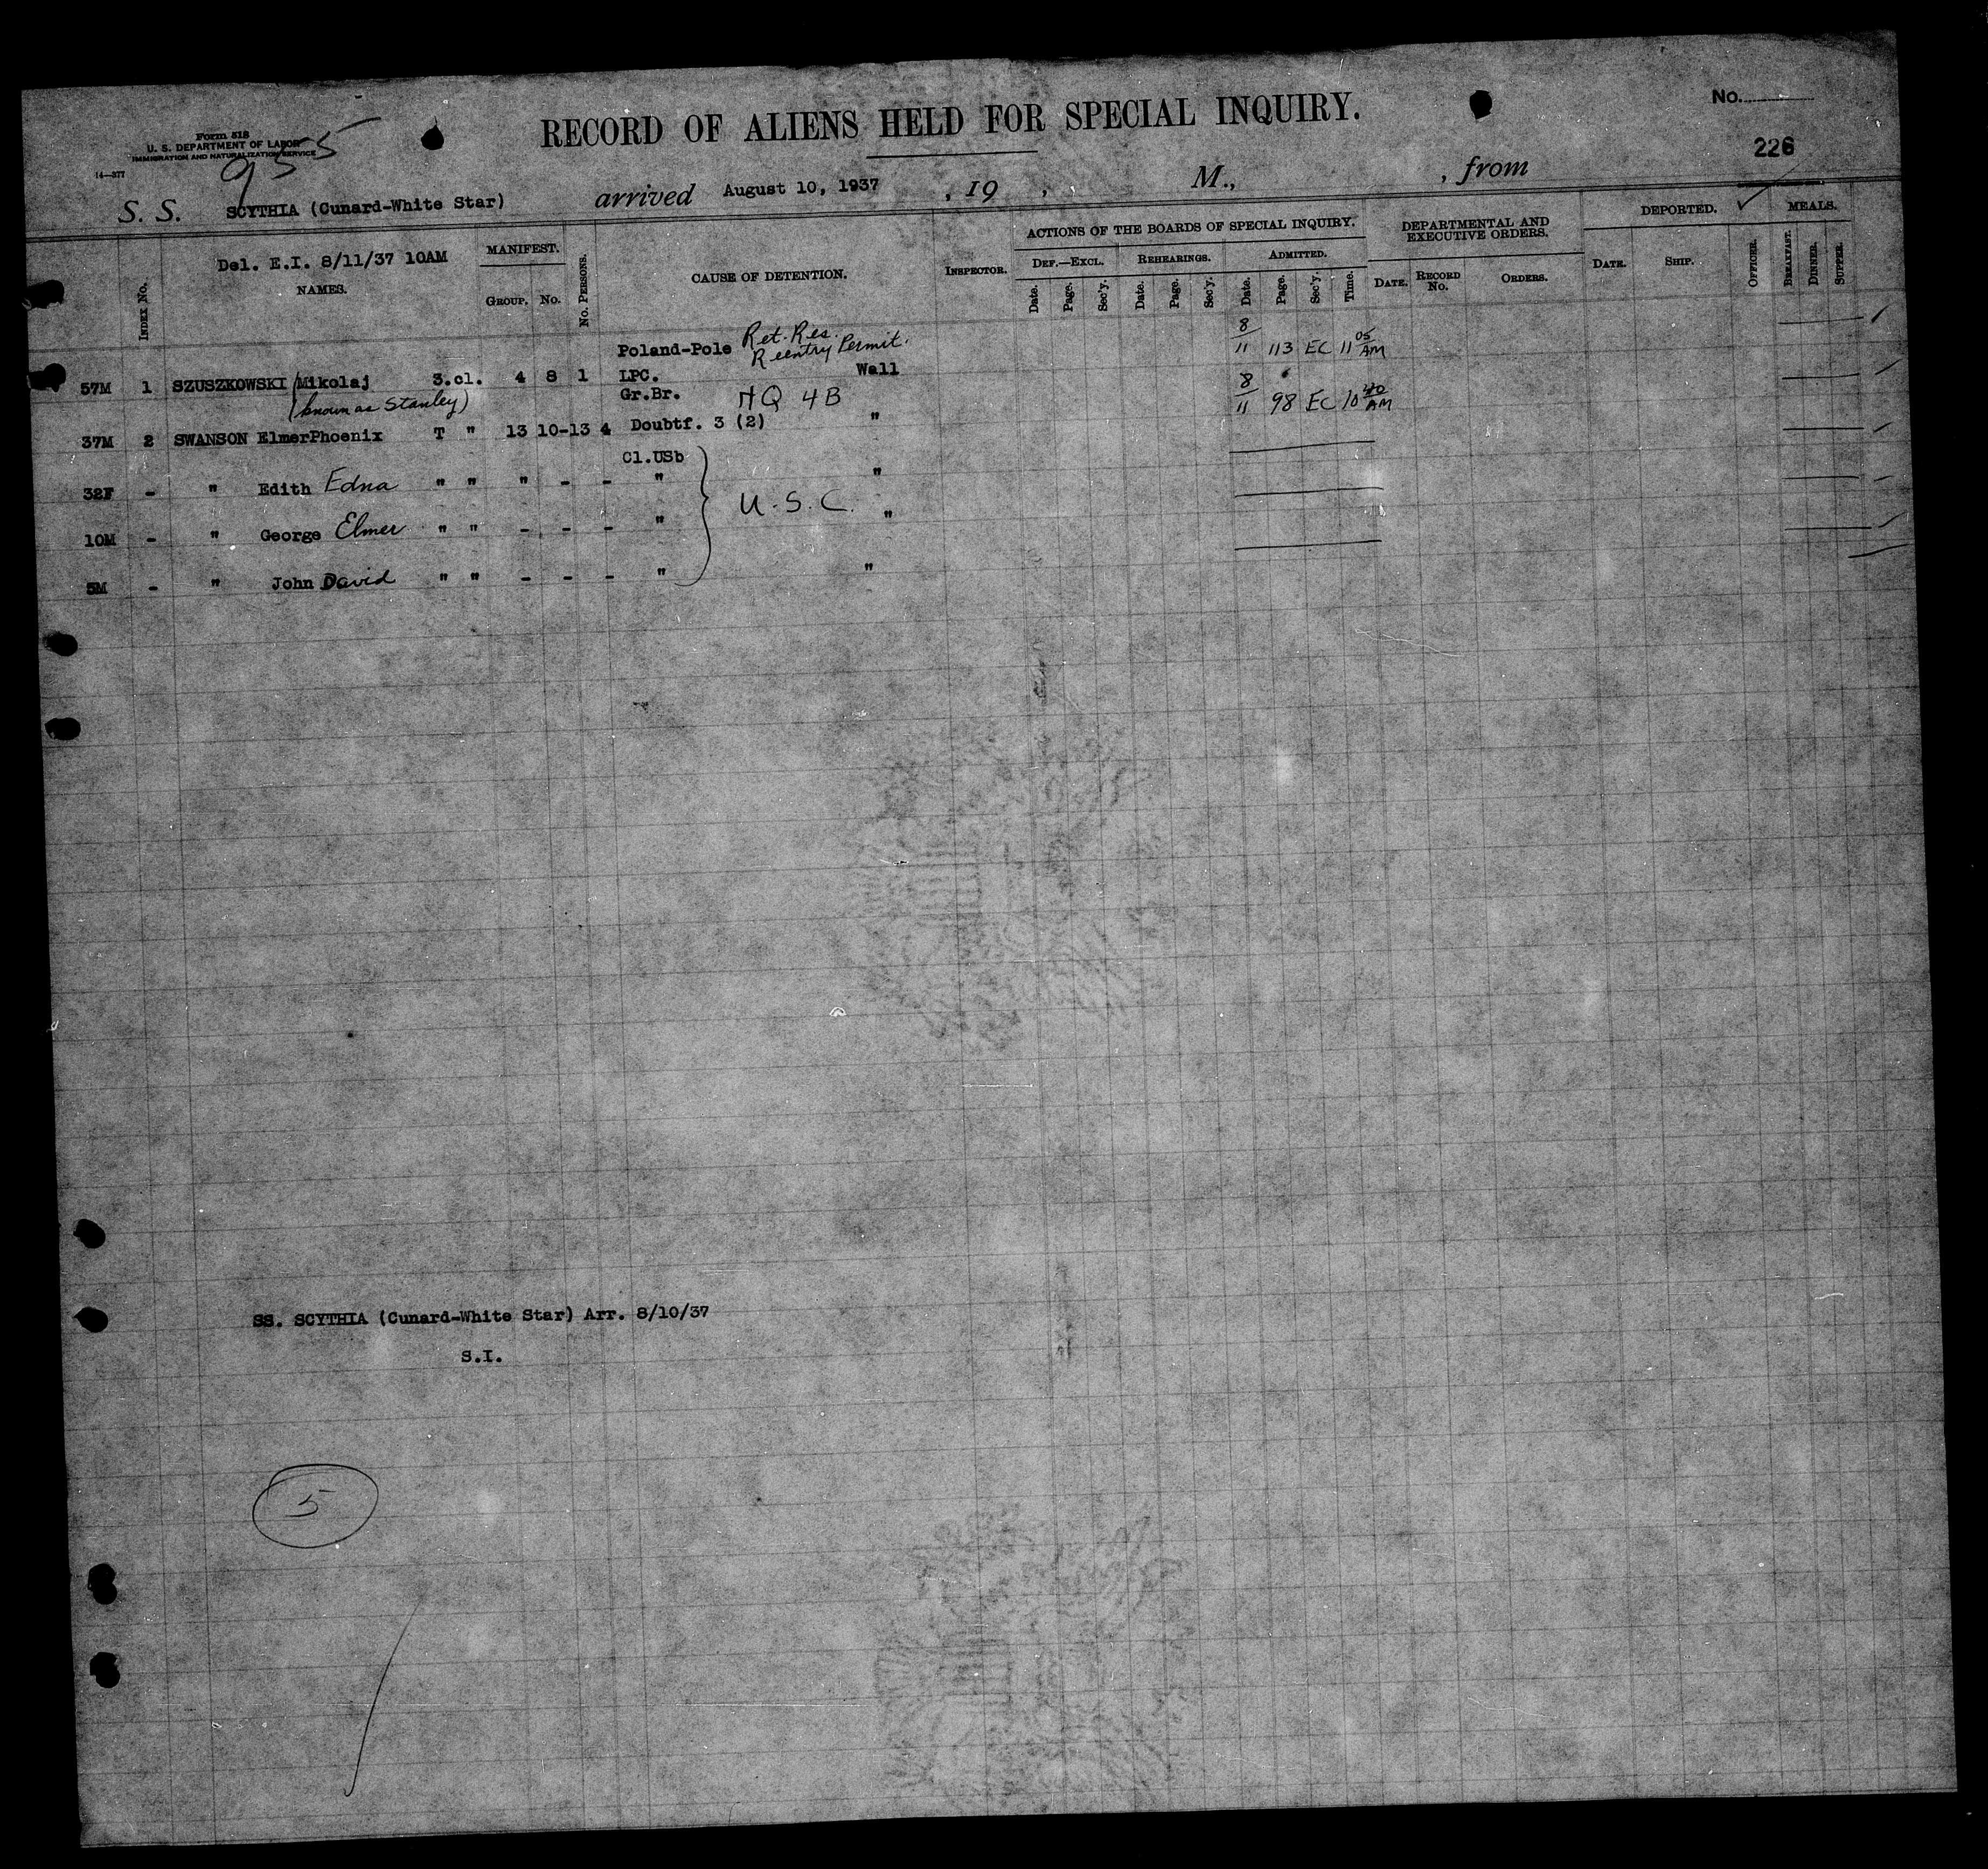 Form 518
U. S. DEPARTMENT OF LABOR
IMMIGRATION AND NATURALIZATION SERVICE
14—377
955
RECORD OF ALIENS HELD FOR SPECIAL INQUIRY.
No.
226
S. S. SCYTHIA (Cunard-White Star) arrived August 10, 1937 , 19 , M., , from
Del. E.I. 8/11/37 10AM
INDEX No. NAMES. MANIFEST. GROUP. No. No. PERSONS. CAUSE OF DETENTION. INSPECTOR. ACTIONS OF THE BOARDS OF SPECIAL INQUIRY. DEPARTMENTAL AND EXECUTIVE ORDERS. DEPORTED. MEALS.
DEF.—EXCL. REHEARINGS. ADMITTED.
Date. Page. Sec'y. Date. Page. Sec'y. Date. Page. Sec'y. Time. DATE. RECORD No. ORDERS. DATE. SHIP. OFFICER. BREAKFAST. DINNER. SUPPER.
Poland-Pole Ret. Res. Reentry Permit. 8/11 113 EC 11 05 AM
57M 1 SZUSZKOWSKI Mikolaj 3.cl. 4 8 1 LPC. Wall
(known as Stanley) Gr.Br. HQ 4B 8/11 98 EC 10 40 AM
37M 2 SWANSON ElmerPhoenix T " 13 10-13 4 Doubtf. 3 (2) "
Cl.USb
32F - " Edith Edna " " " - - " "
U.S.C.
10M - " George Elmer " " - - - " "
5M - " John David " " - - - " "
SS. SCYTHIA (Cunard-White Star) Arr. 8/10/37
S.I.
5